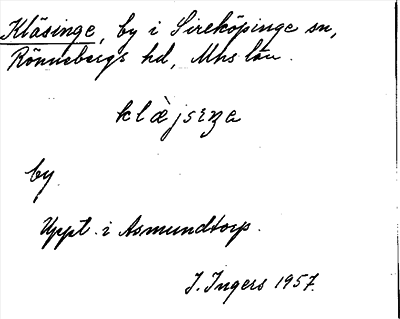 Kläsinge, by i Sireköpinge sn,
Rönnebergs hd, Mhs län.
klæ̀jsiŋa
by
Uppt. i Asmundtorp.
I. Ingers 1957.